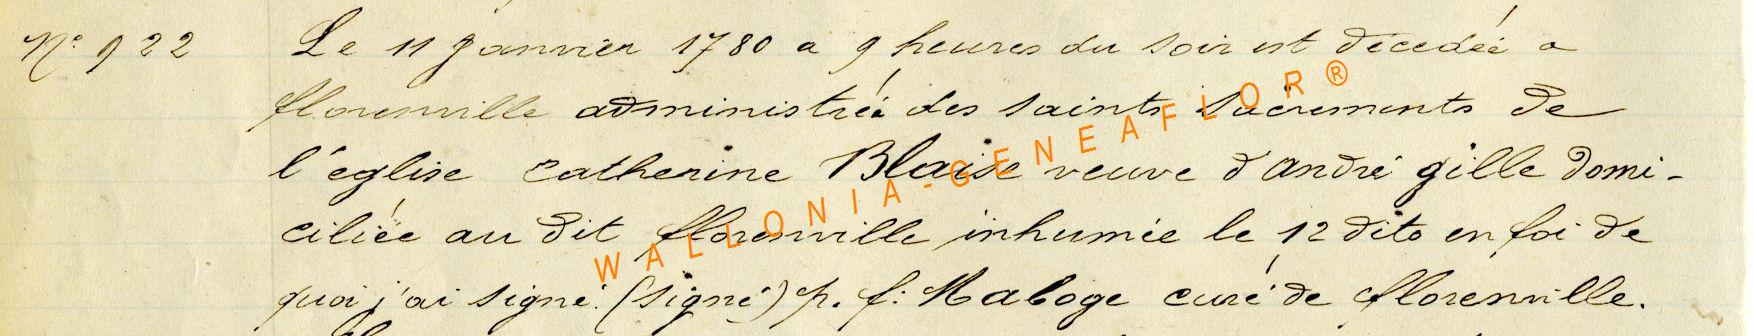 N° 922 Le 11 janvier 1780 a 9 heures du soir est décedée a
florenville administrée des saints sacrements de
l'église Catherine Blaise veuve d'andré gille domi-
ciliée au dit florenville inhumée le 12 dito en foi de
quoi j'ai signé. (signé) p. f. Maloge curé de florenville.
WALLONIA-GENEAFLOR®